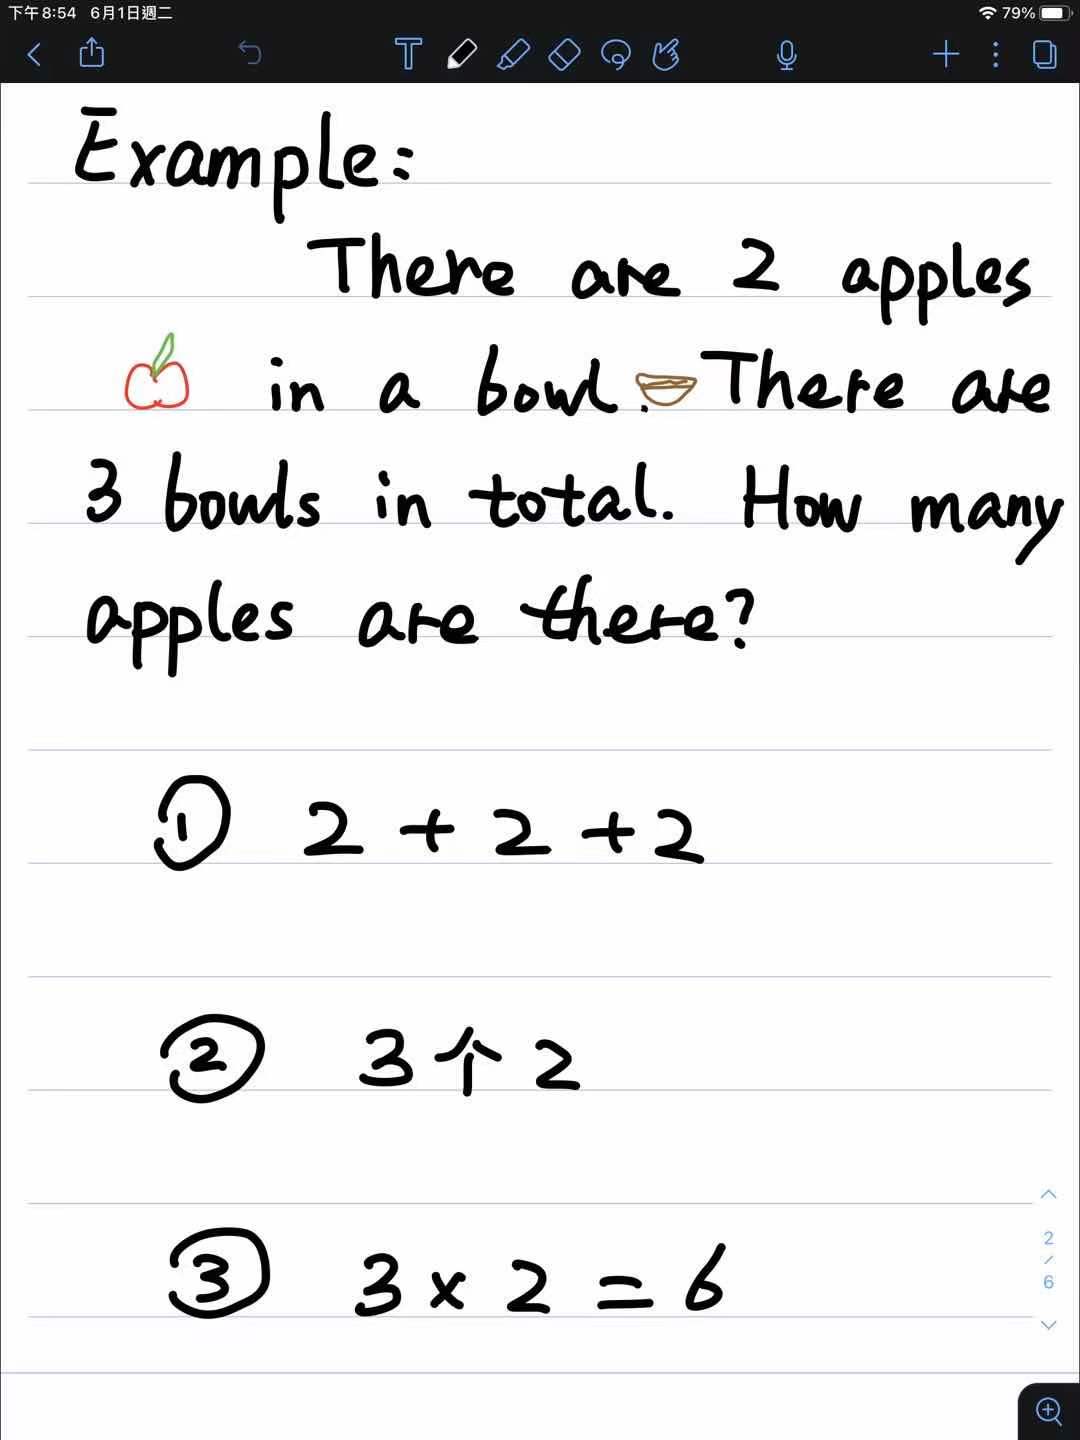 下午8:54 6月1日週二 79%
T
Example:
There are 2 apples
in a bowl. There are
3 bowls in total. How many
apples are there?
① 2 + 2 + 2
② 3个2
③ 3 × 2 = 6
2
/
6